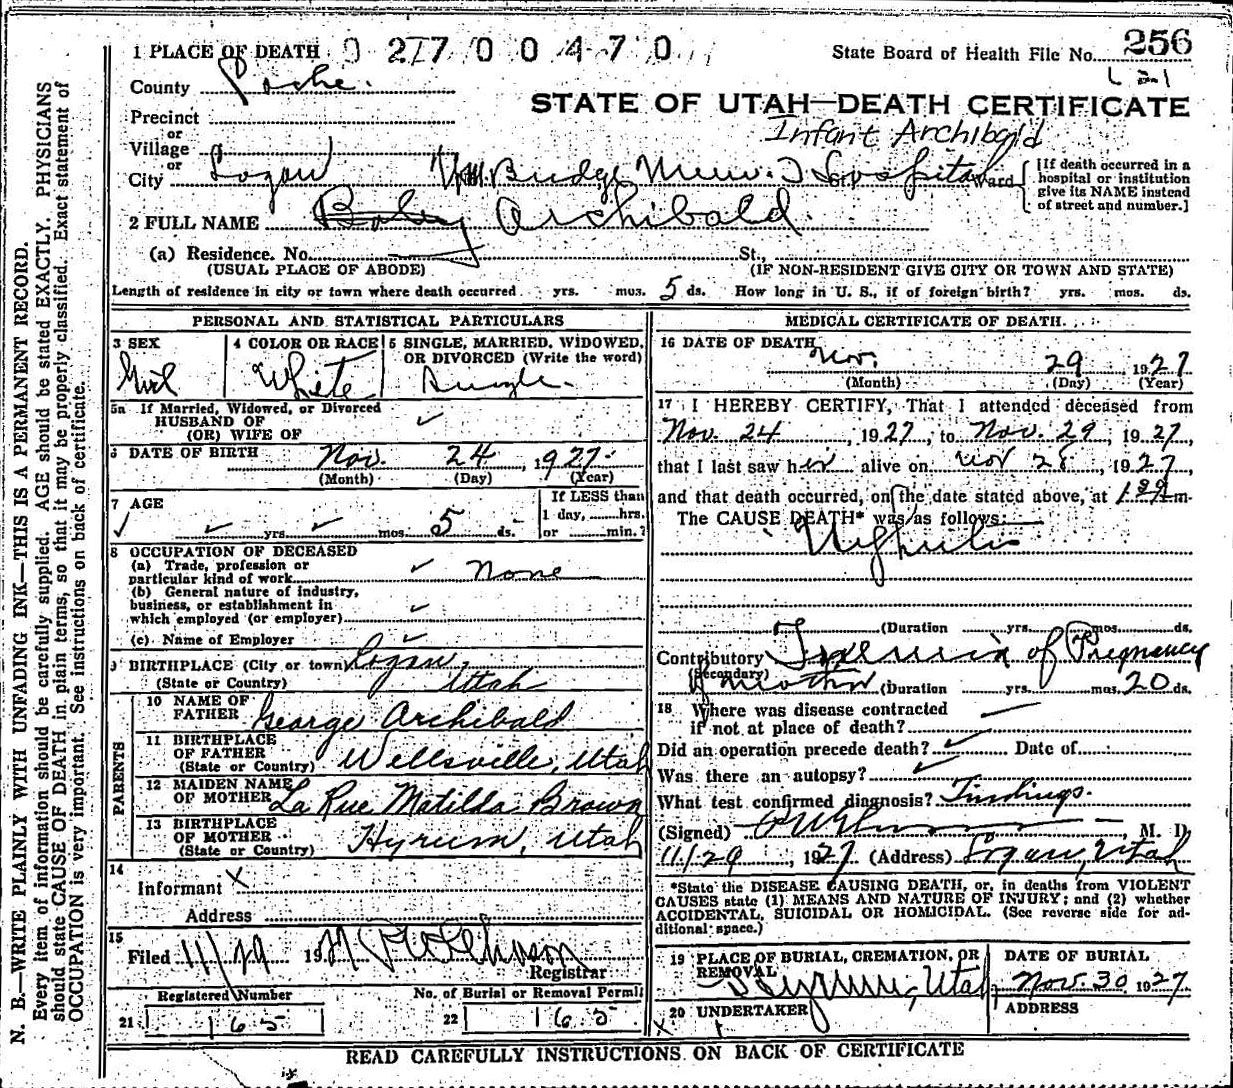 1 PLACE OF DEATH 9 27 0 0 4 7 0
State Board of Health File No. 256
County Cache.
STATE OF UTAH—DEATH CERTIFICATE
Precinct
or
Infant Archibald
Village
or
City Logan Wm. Budge Mem. Hospital Ward
[If death occurred in a hospital or institution give its NAME instead of street and number.]
2 FULL NAME Baby Archibald.
(a) Residence. No. St.,
(USUAL PLACE OF ABODE) (IF NON-RESIDENT GIVE CITY OR TOWN AND STATE)
Length of residence in city or town where death occurred yrs. mos. 5 ds. How long in U. S., if of foreign birth? yrs. mos. ds.
PERSONAL AND STATISTICAL PARTICULARS
3 SEX 4 COLOR OR RACE 5 SINGLE, MARRIED, WIDOWED,
OR DIVORCED (Write the word)
Girl White Single.
5a If Married, Widowed, or Divorced
HUSBAND OF
(OR) WIFE OF
6 DATE OF BIRTH Nov. 24, 1927.
(Month) (Day) (Year)
7 AGE If LESS than
1 day, hrs.
yrs. mos. 5 ds. or min.?
8 OCCUPATION OF DECEASED
(a) Trade, profession or
particular kind of work None
(b) General nature of industry,
business, or establishment in
which employed (or employer)
(c) Name of Employer
9 BIRTHPLACE (City or town) Logan,
(State or Country) Utah
PARENTS
10 NAME OF
FATHER George Archibald
11 BIRTHPLACE
OF FATHER
(State or Country) Wellsville, Utah
12 MAIDEN NAME
OF MOTHER La Rue Matilda Brown
13 BIRTHPLACE
OF MOTHER
(State or Country) Hyrum, Utah
14
Informant X
Address
15
Filed 11/29 1927
Registrar
Registered Number No. of Burial or Removal Permit
21 165 22 165
MEDICAL CERTIFICATE OF DEATH.
16 DATE OF DEATH Nov. 29 1927
(Month) (Day) (Year)
17 I HEREBY CERTIFY, That I attended deceased from
Nov. 24, 1927, to Nov. 29, 1927,
that I last saw her alive on Nov 28, 1927,
and that death occurred, on the date stated above, at m.
The CAUSE DEATH* was as follows:
Nephritis
(Duration yrs. mos. ds.
Contributory Toxemia of Pregnancy
(Secondary) of mother (Duration yrs. mos. 20 ds.
18 Where was disease contracted
if not at place of death?
Did an operation precede death? Date of
Was there an autopsy?
What test confirmed diagnosis? Findings.
(Signed) M. D.
11/29, 1927 (Address) Logan, Utah
*State the DISEASE CAUSING DEATH, or, in deaths from VIOLENT
CAUSES state (1) MEANS AND NATURE OF INJURY; and (2) whether
ACCIDENTAL, SUICIDAL OR HOMICIDAL. (See reverse side for ad-
ditional space.)
19 PLACE OF BURIAL, CREMATION, OR
REMOVAL
Hyrum, Utah
DATE OF BURIAL
Nov. 30 1927.
20 UNDERTAKER ADDRESS
X
READ CAREFULLY INSTRUCTIONS ON BACK OF CERTIFICATE
N. B.—WRITE PLAINLY WITH UNFADING INK—THIS IS A PERMANENT RECORD.
Every item of information should be carefully supplied. AGE should be stated EXACTLY. PHYSICIANS
should state CAUSE OF DEATH in plain terms, so that it may be properly classified. Exact statement of
OCCUPATION is very important. See instructions on back of certificate.